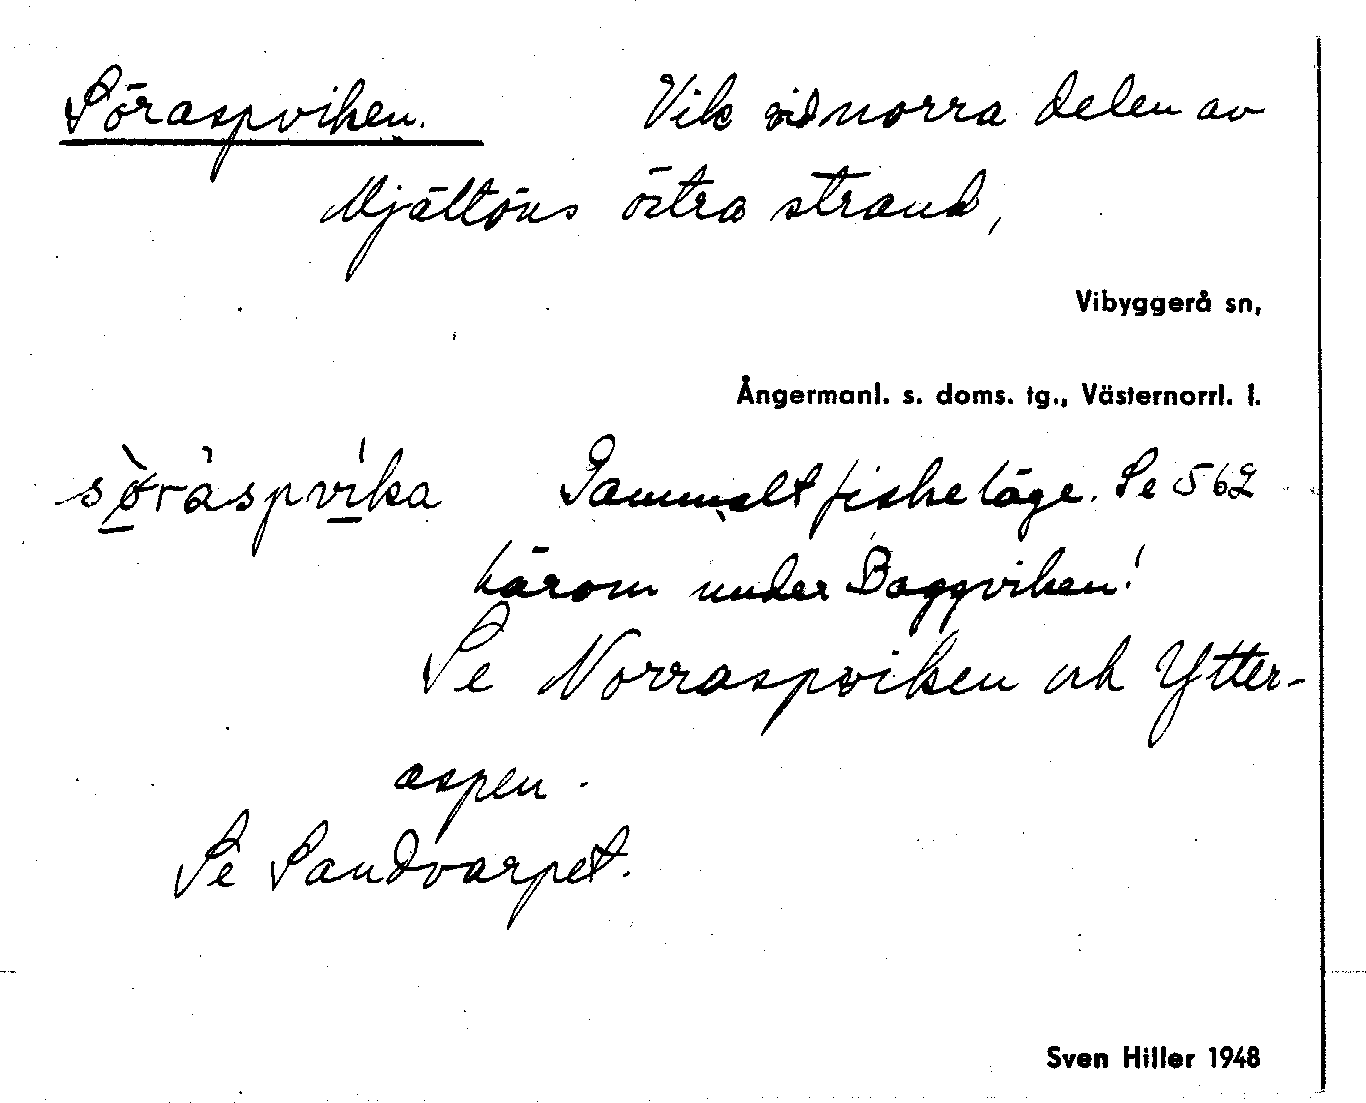 Söraspviken. Vik vid norra delen av
Mjältöns östra strand,
Vibyggerå sn,
Ångermanl. s. doms. tg., Västernorrl. l.
sø̀ràspvìka Gammalt fiskeläge. Se 562
härom under Baggviken!
Se Norraspviken och Ytter-
aspen.
Se Sandvarpet.
Sven Hiller 1948